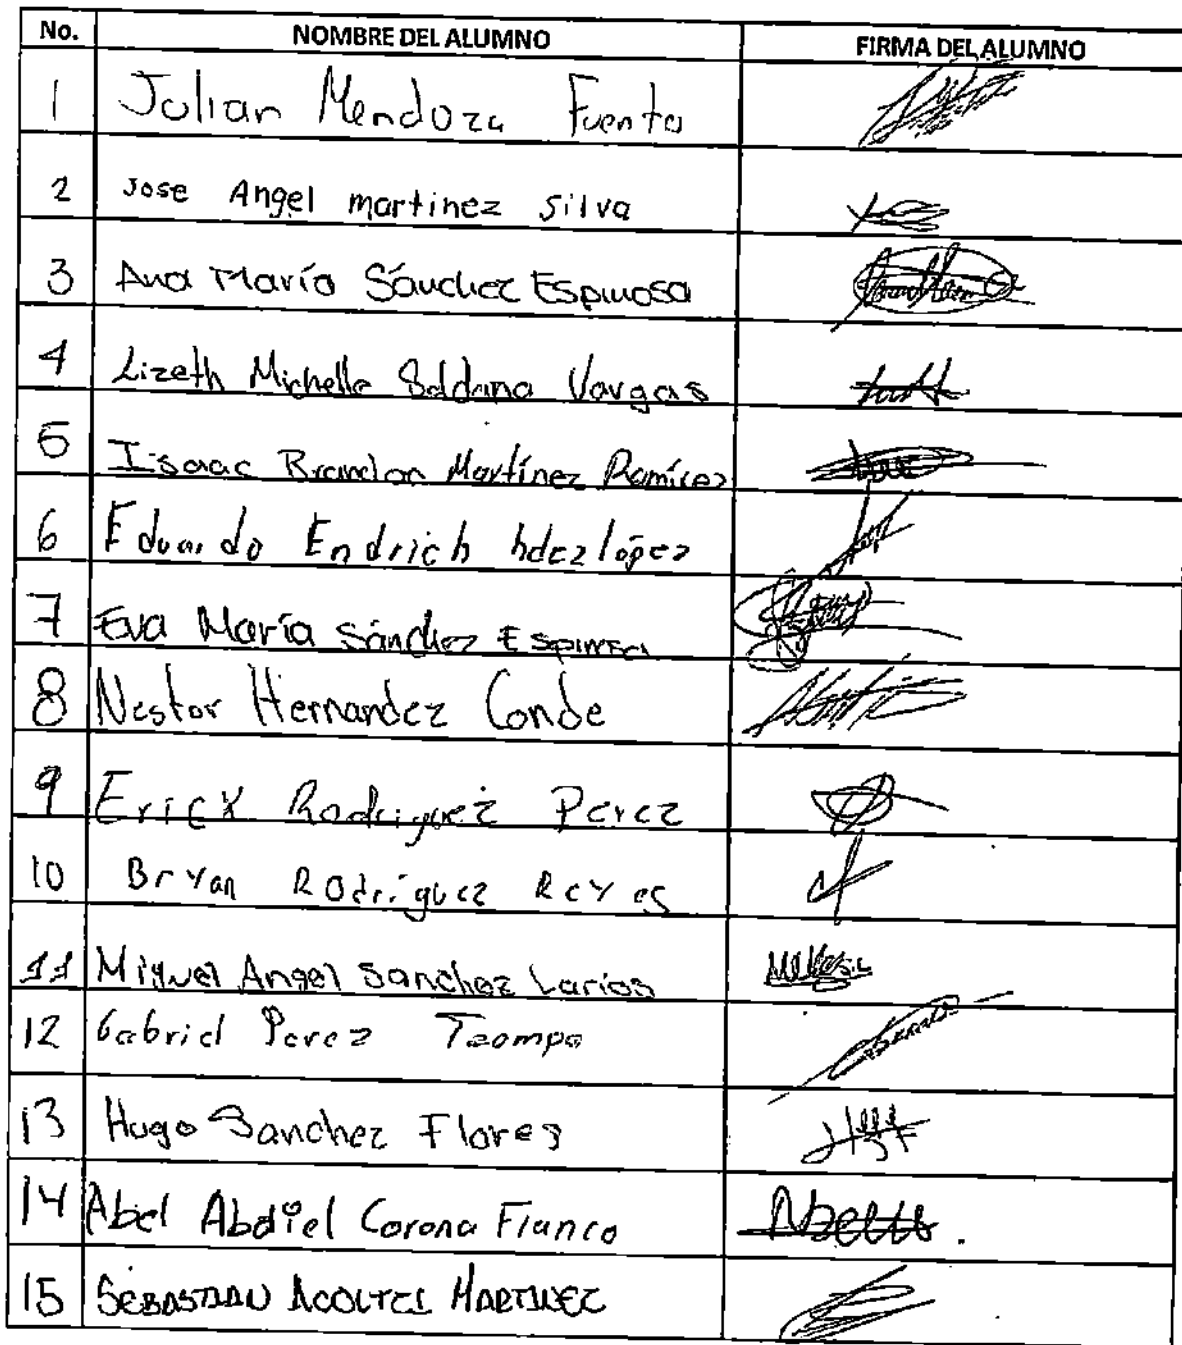 No. NOMBRE DEL ALUMNO FIRMA DEL ALUMNO
1 Julian Mendoza Fuentes
2 Jose Angel martinez Silva
3 Ana María Sánchez Espinosa
4 Lizeth Michelle Saldana Vargas
5 Isaac Brandon Martínez Ramírez
6 Eduardo Endrich hdez lópez
7 Eva María Sánchez Espinosa
8 Nestor Hernandez Conde
9 Erick Rodriguez Perez
10 Bryan Rodríguez Reyes
11 Miguel Angel Sanchez Larios
12 Gabriel Perez Tzompa
13 Hugo Sanchez Flores
14 Abel Abdiel Corona Franco
15 SEBASTIAN ACOLTZI MARTINEZ